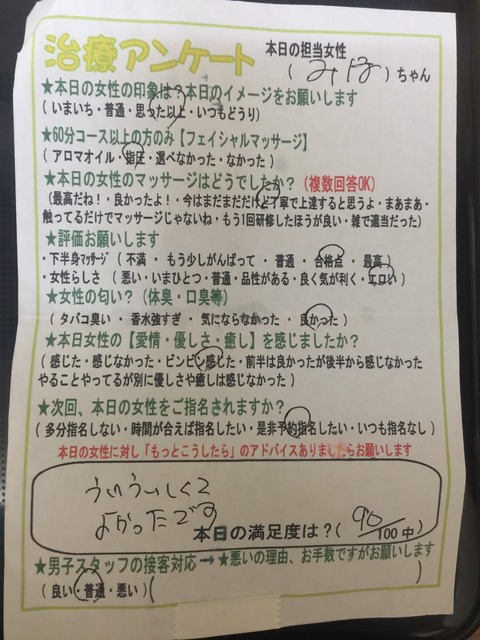 治療アンケート
本日の担当女性
( みほ )ちゃん
★本日の女性の印象は?本日のイメージをお願いします
( いまいち・普通・思った以上・いつもどうり )
★60分コース以上の方のみ【フェイシャルマッサージ】
( アロマオイル・指圧・選べなかった・なかった )
★本日の女性のマッサージはどうでしたか? (複数回答OK)
(最高だね!・良かったよ!・今はまだまだだけど丁寧で上達すると思うよ・まあまあ・
触ってるだけでマッサージじゃないね・もう1回研修したほうが良い・雑で適当だった)
★評価お願いします
・下半身マッサージ ( 不満 ・ もう少しがんばって ・ 普通 ・ 合格点 ・ 最高 )
・女性らしさ ( 悪い・いまひとつ・普通・品性がある・良く気が利く・エロい )
★女性の匂い? (体臭・口臭等)
( タバコ臭い ・ 香水強すぎ ・ 気にならなかった ・ 良かった )
★本日女性の【愛情・優しさ・癒し】を感じましたか?
( 感じた・感じなかった・ビンビン感した・前半は良かったが後半から感じなかった
やることやってるが別に優しさや癒しは感じなかった )
★次回、本日の女性をご指名されますか?
( 多分指名しない・時間が合えば指名したい・是非予約指名したい・いつも指名なし )
本日の女性に対し「もっとこうしたら」のアドバイスありましたらお願いします
ういういしくて
よかったです
本日の満足度は?( 90/100中)
★男子スタッフの接客対応 → ★悪いの理由、お手数ですがお願いします
( 良い・普通・悪い ) ( )